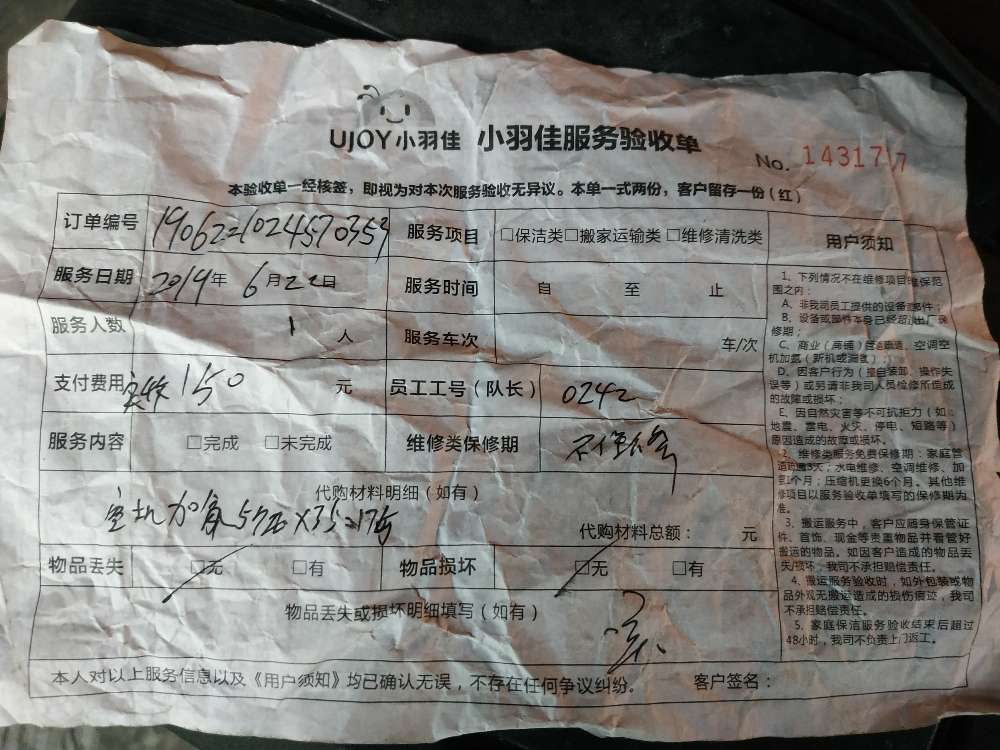 UJOY小羽佳 小羽佳服务验收单
No. 1431717
本验收单一经核签，即视为对本次服务验收无异议。本单一式两份，客户留存一份（红）
订单编号 190622102457035 服务项目 □保洁类□搬家运输类□维修清洗类
服务日期 2019年 6月22日 服务时间 自 至 止
服务人数 1 人 服务车次 车/次
支付费用 实收150 元 员工工号（队长） 0242
服务内容 □完成 □未完成 维修类保修期 不保修
代购材料明细（如有）
加 代购材料总额： 元
物品丢失 □无 □有 物品损坏 □无 □有
物品丢失或损坏明细填写（如有）
本人对以上服务信息以及《用户须知》均已确认无误，不存在任何争议纠纷。 客户签名：
用户须知
1、下列情况不在维修项目维保范
围之内：
A、非我司员工提供的设备部件；
B、设备或部件本身已经超过出厂保
修期；
C、商业（商铺）管道疏通、空调空
机加氨（新机或漏氨）；
D、因客户行为（擅自装卸、操作失
误等）或另请非我司人员检修所造成
的故障或损坏；
E、因自然灾害等不可抗拒力（如：
地震、雷电、火灾、停电、短路等）
原因造成的故障或损坏。
2、维修类服务免费保修期：家庭管
道疏通3天；水电维修、空调维修、加
1个月；压缩机更换6个月。其他维
修项目以服务验收单填写的保修期为
准。
3、搬运服务中，客户应随身保管证
件、首饰、现金等贵重物品并看管好
搬运的物品。如因客户造成的物品丢
失/损坏，我司不承担赔偿责任。
4、搬运服务验收时，如外包装或物
品外观无搬运造成的损伤痕迹，我司
不承担赔偿责任。
5、家庭保洁服务验收结束后超过
48小时，我司不负责上门返工。